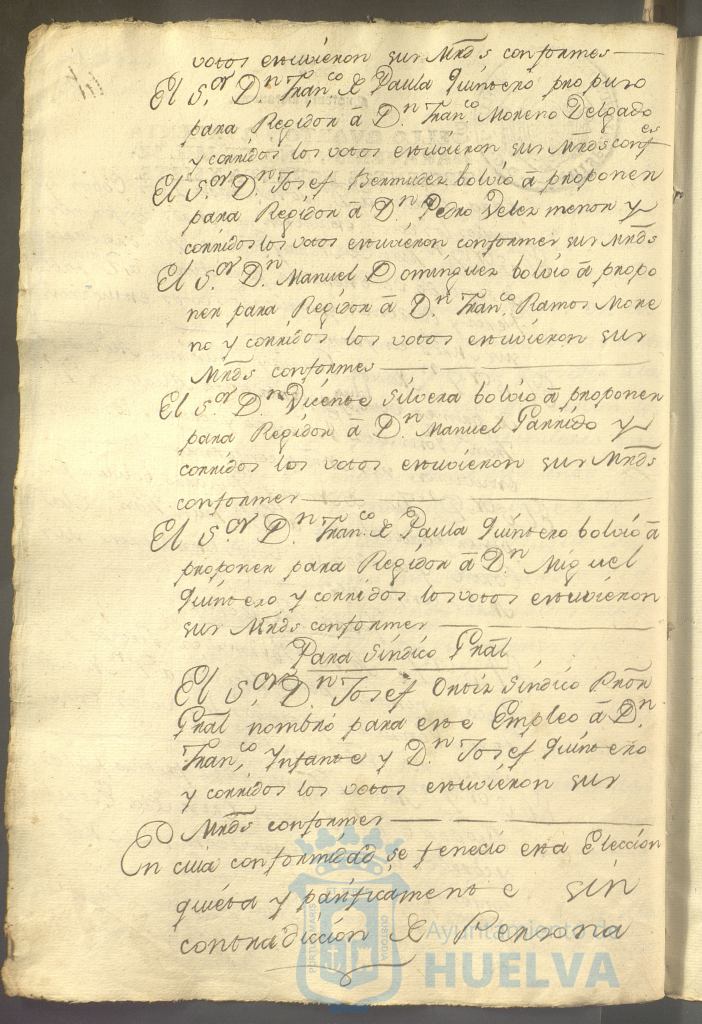 votos estuvieron sus Mrds conformes
El S.or D.n Fran.co de Paula Quintero propuso
para Regidor â D.n Fran.co Moreno Delgado
y corridos los votos estuvieron sus Mrds conf.es
El S.or D.n Josef Bermudez bolvio â proponer
para Regidor â D.n Pedro Velez menor y
corridos los votos estuvieron conformes sus Mrds
El S.or D.n Manuel Dominguez bolvio â propo
ner para Regidor â D.n Fran.co Ramos More
no y corridos los votos estuvieron sus
Mrds conformes
El S.or D.n Vicente Silvera bolvio â proponer
para Regidor â D.n Manuel Garrido y
corridos los votos estuvieron sus Mrds
conformes
El S.or D.n Fran.co de Paula Quintero bolvió â
proponer para Regidor â D.n Miguel
Quintero y corridos los votos estuvieron
sus Mrds conformes
Para Sindico Gral
El S.or D.n Josef Ortiz Sindico Pror
Gral nombró para este Empleo â D.n
Fran.co Ynfante y D.n Josef Quintero
y corridos los votos estuvieron sus
Mrds conformes
En cuia conformidad se feneció esta Elección
quieta y pasificamente sin
contradicción de Persona
PORTUS MARIS ET TERRAE CUSTODIA
Ayuntamiento de
HUELVA